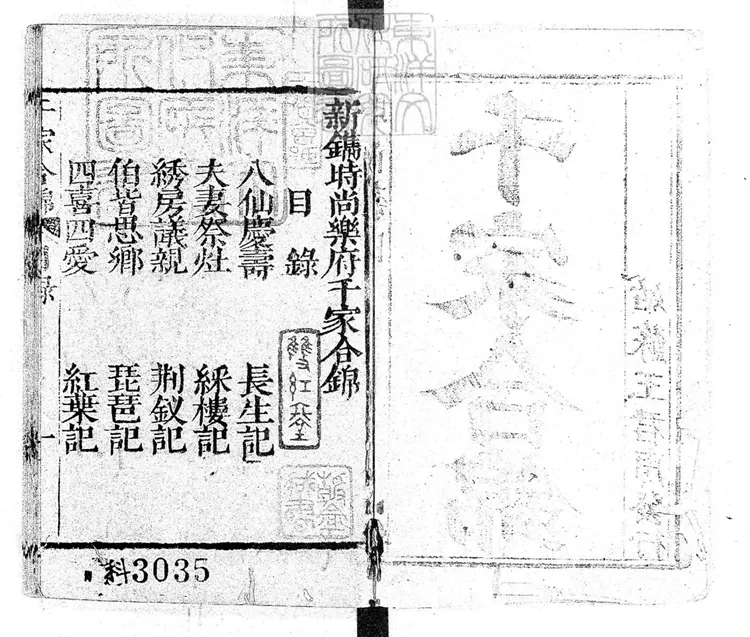 千家合錦
姑蘇王君甫發行
新鐫時尚樂府千家合錦
目錄
八仙慶壽 長生記
夫妻祭灶 綵樓記
綉房議親 荆釵記
伯喈思鄉 琵琶記
四喜四愛 紅葉記
千家合錦 目錄 一
雙紅堂
科3035